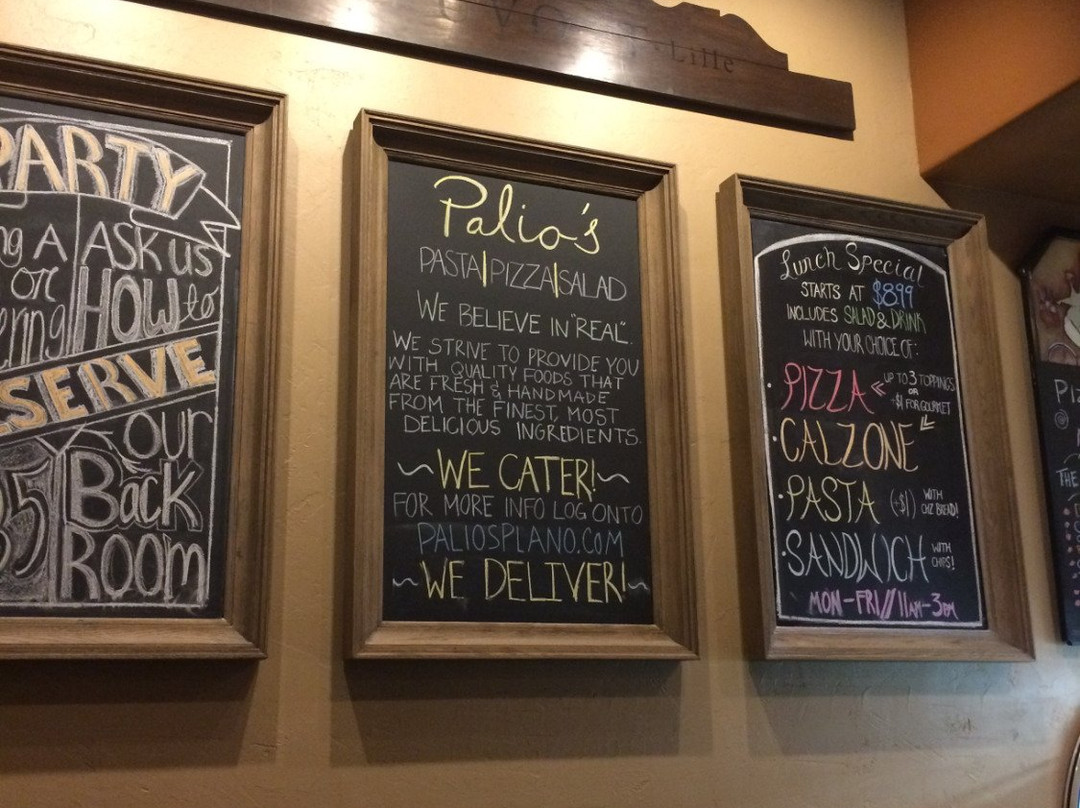 Lille
PARTY
A
or
ASK us
HOW to
SERVE
our
Back
ROOM
Palio's
PASTA|PIZZA|SALAD
WE BELIEVE IN "REAL".
WE STRIVE TO PROVIDE YOU
WITH QUALITY FOODS THAT
ARE FRESH & HANDMADE
FROM THE FINEST, MOST
DELICIOUS INGREDIENTS.
~WE CATER!~
FOR MORE INFO LOG ONTO
PALIOSPLANO.COM
~WE DELIVER!~
Lunch Special
STARTS AT $8.99
INCLUDES SALAD & DRINK
WITH YOUR CHOICE OF:
• PIZZA « UP TO 3 TOPPINGS
OR
+$1 FOR GOURMET
• CALZONE «
• PASTA (+$1) WITH
CHZ BREAD!
• SANDWICH WITH
CHIPS!
MON-FRI//11AM-3PM
THE